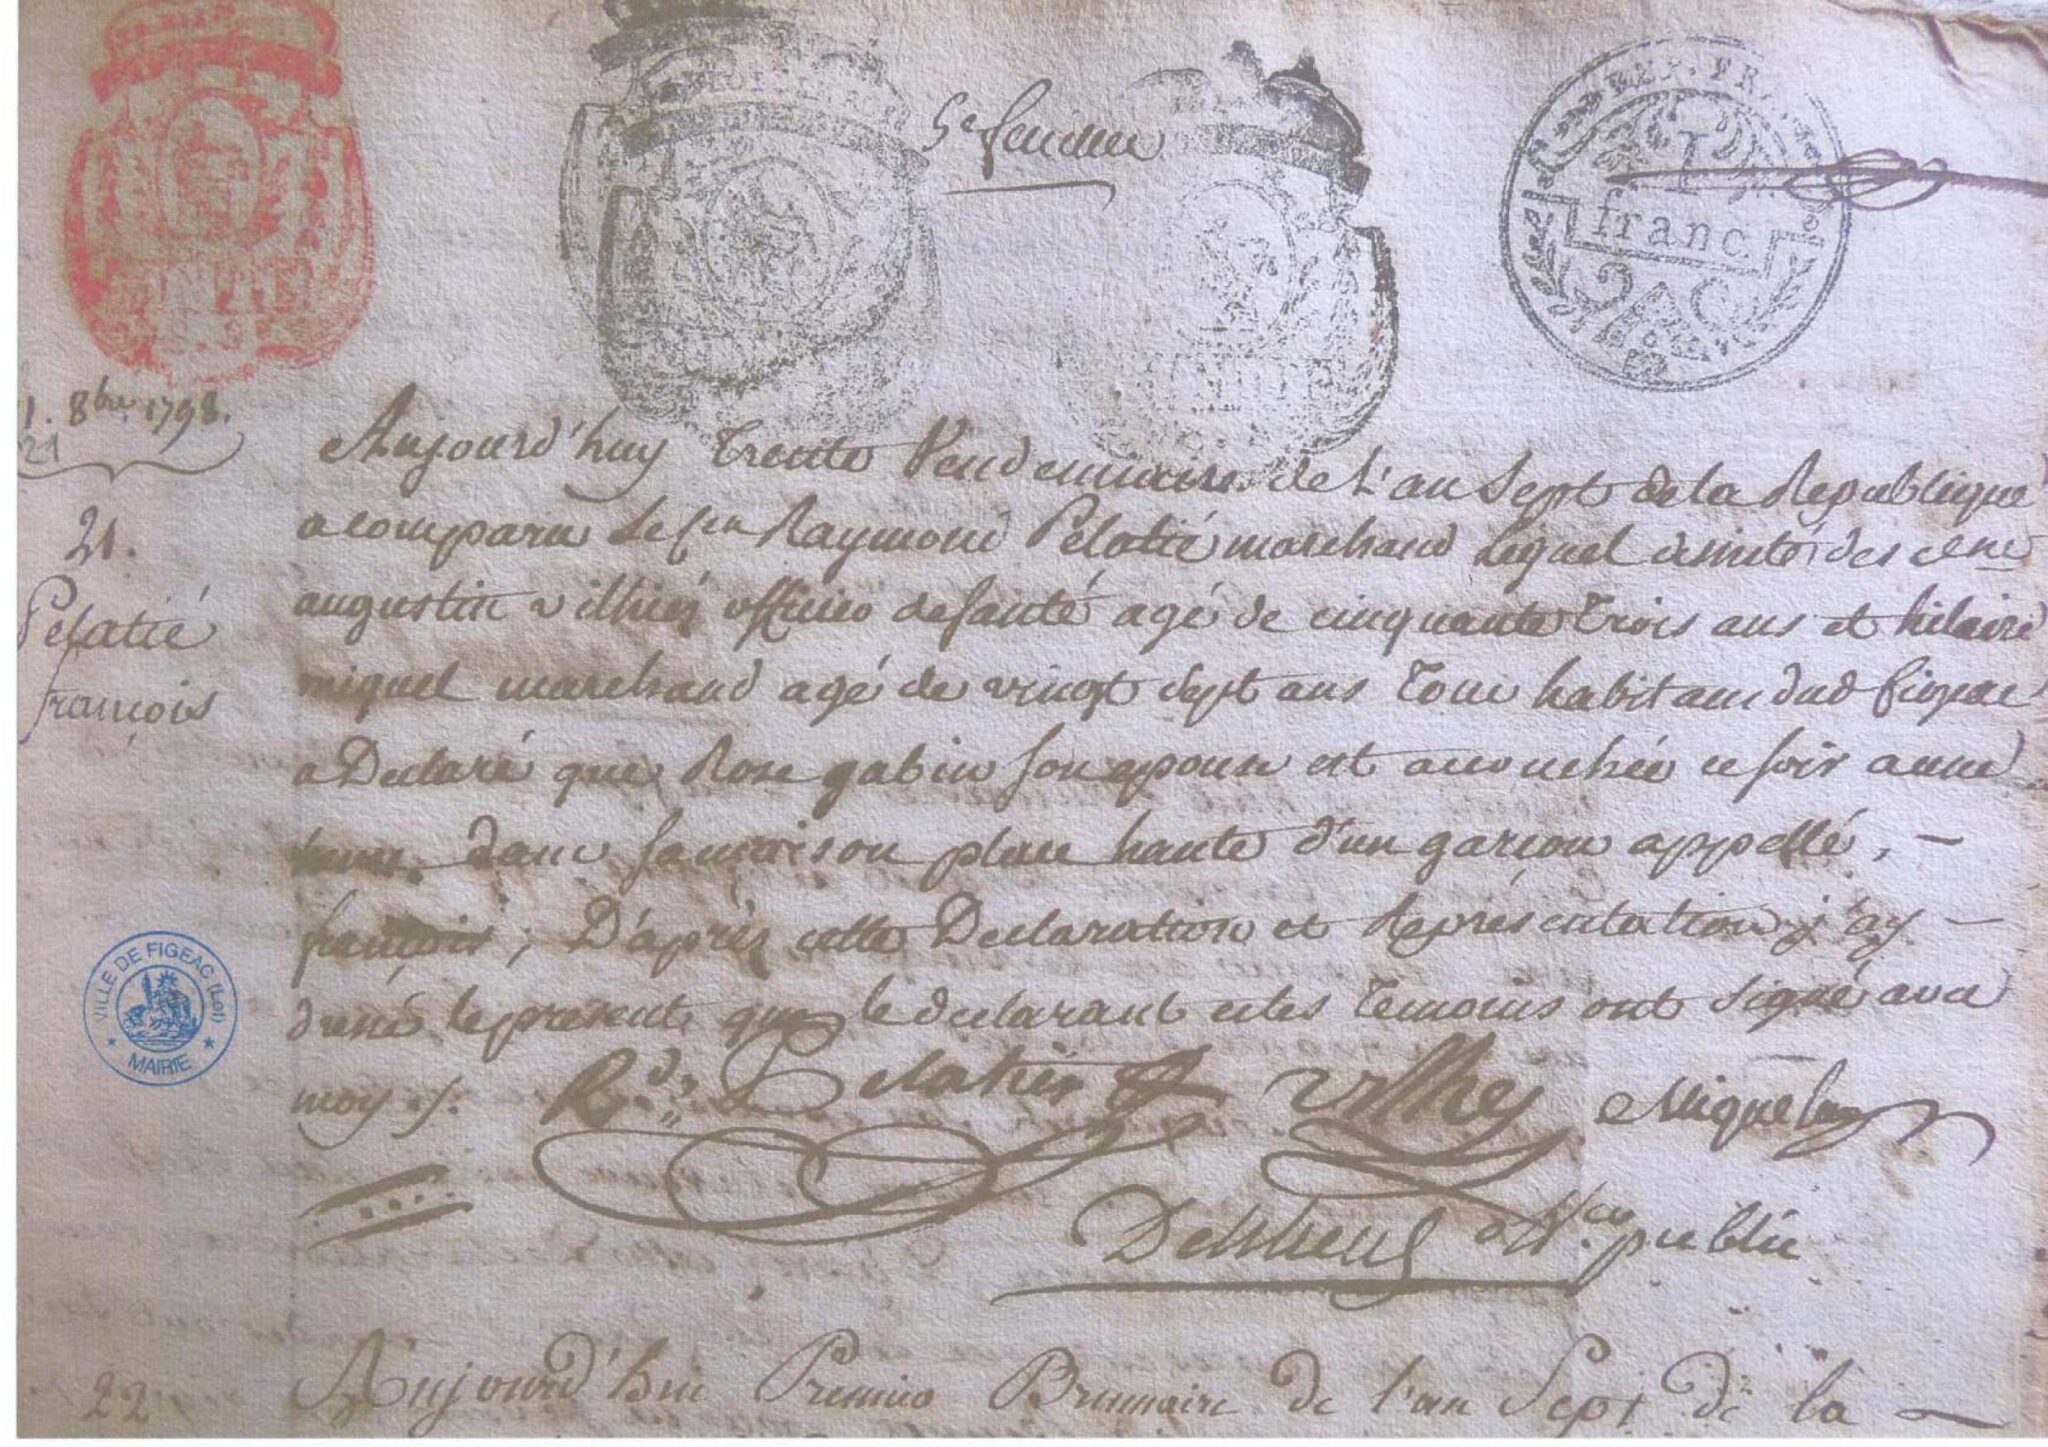 5e feuillet
REP. FRA
1
franc
1. 8bre 1798.
21
21.
Pelatié
françois
Aujourd'huy trente Vendemiaire de L'an Sept de la Republique
a comparu le Cen Raymond Pelatié marchand Lequel assisté des cene
augustin vilhiés officier de santé agé de cinquante trois ans et hilaire
miquel marchand agé de vingt sept ans tous habitans dud figeac
a Declaré que Rose gabin son epouse est accouchée ce soir a une
heure dans sa maison place haute d'un garçon appellé, —
françois ; D'après cette Declaration et Représentation j'ay —
dressé le present que le declarant et les temoins ont signé avec
moy /.
Rd. Pelatié
Vilhiés
Miquel
publié
VILLE DE FIGEAC (Lot)
MAIRIE
22
Aujourd'hui Premier Brumaire de l'an Sept de la